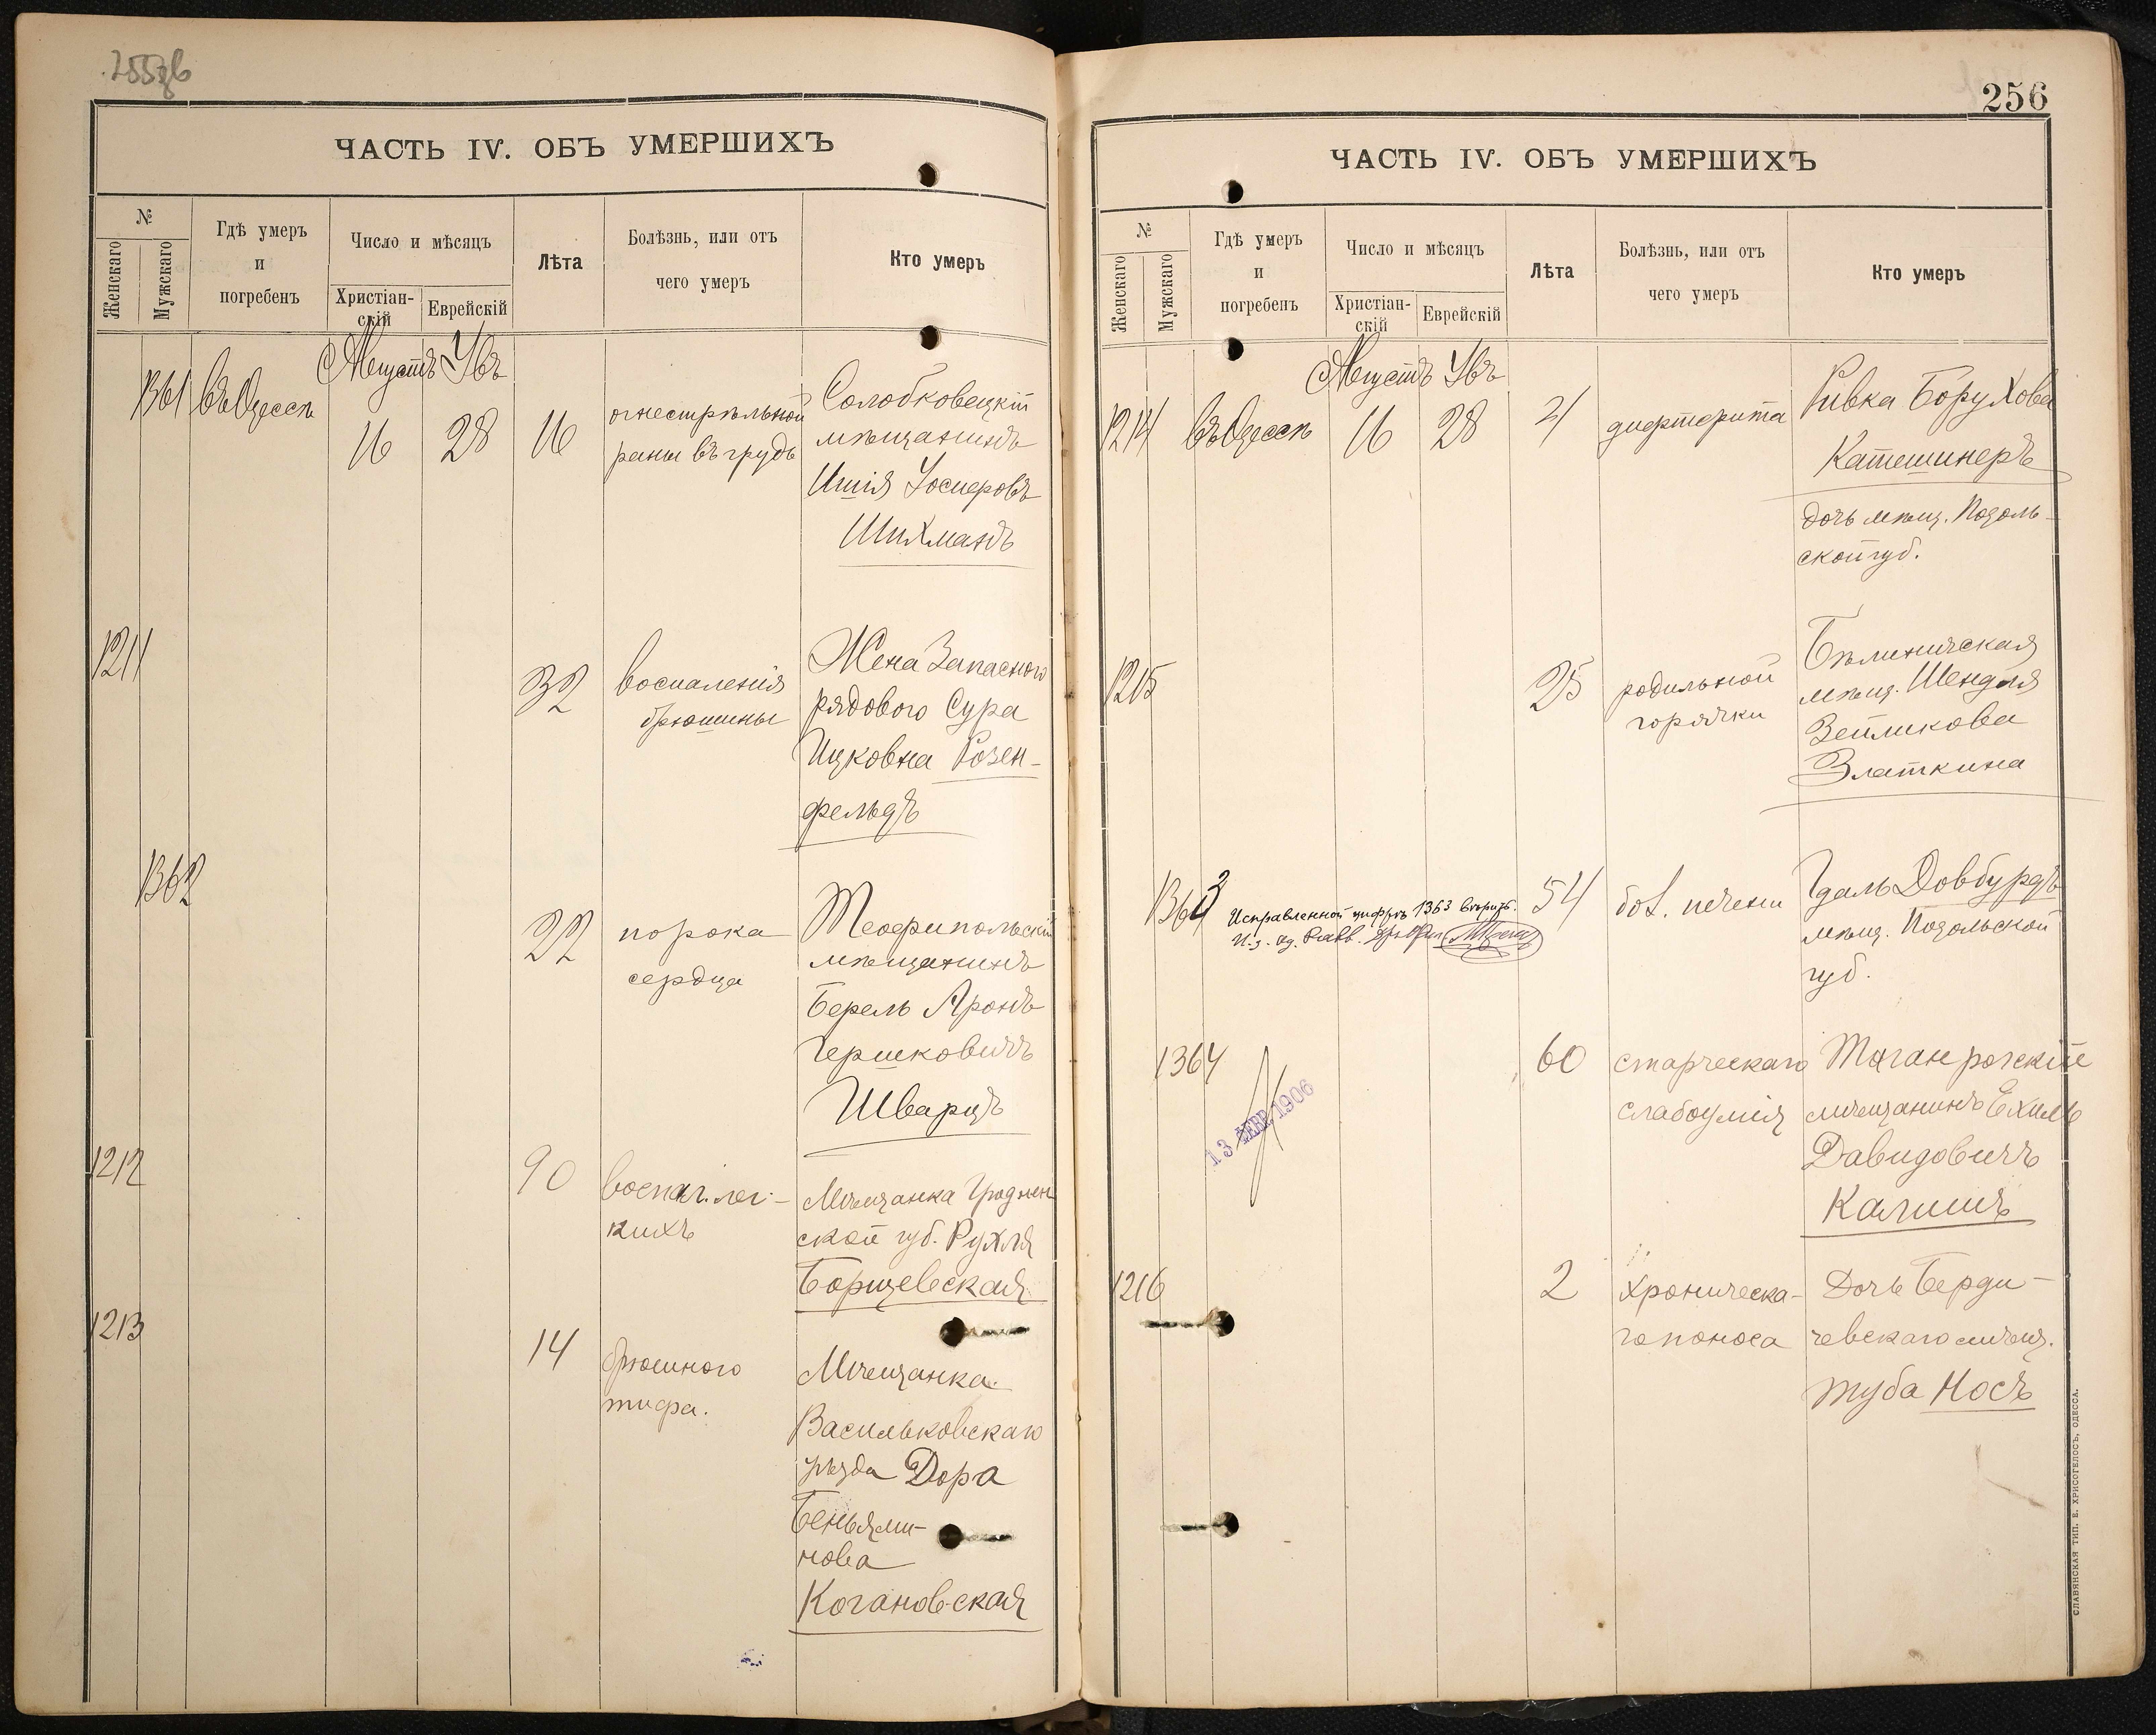 255об
ЧАСТЬ IV. ОБЪ УМЕРШИХЪ
№
Женскаго
Мужскаго
Гдѣ умеръ
и
погребенъ
Число и мѣсяцъ
Христіан-
скій
Еврейскій
Лѣта
Болѣзнь, или отъ
чего умеръ
Кто умеръ
Августъ Увъ
1361 въ Одессѣ 16 28 16
огнестрѣльной
раны въ грудь
Солобковецкій
мѣщанинъ
Ишія Уосиеровъ
Шихманъ
1211 32
воспаленія
брюшины
Жена Запасного
рядового Сура
Ицковна Розен-
фельдъ
1362 22
порока
сердца
Теофипольскій
мѣщанинъ
Берель Аронъ
Гершковичъ
Шварцъ
1212 90
воспал. лег-
кихъ
Мѣщанка Гроднен
ской губ. Рухля
Борщевская
1213 14
брюшного
тифа.
Мѣщанка
Васильковскаго
уѣзда Дора
Беньями-
нова
Коганов-ская
256
ЧАСТЬ IV. ОБЪ УМЕРШИХЪ
№
Женскаго
Мужскаго
Гдѣ умеръ
и
погребенъ
Число и мѣсяцъ
Христіан-
скій
Еврейскій
Лѣта
Болѣзнь, или отъ
чего умеръ
Кто умеръ
Августъ Увъ
1214 въ Одессѣ 16 28 4
дифтерита
Ривка Борухова
Катешинеръ
дочь мѣщ. Подоль-
ской губ.
1215 25
родильной
горячки
Бѣлиничская
мѣщ. Шендля
Зеликова
Златкина
1363 54
бол. печени
Исправленной цифрѣ 1363 вѣрить.
И. д. Од. Равв.
Гдаль Довбурдъ
мѣщ. Подольской
губ.
1364 60
старческаго
слабоумія
Таганрогскій
мѣщанинъ Ехиль
Давидовичъ
Калишъ
13 ФЕВР. 1906
1216 2
хроническа-
го поноса
Дочь Берди-
чевскаго мѣщ.
Туба Носъ
СЛАВЯНСКАЯ ТИП. Е. ХРИСОГЕЛОСЪ, ОДЕССА.